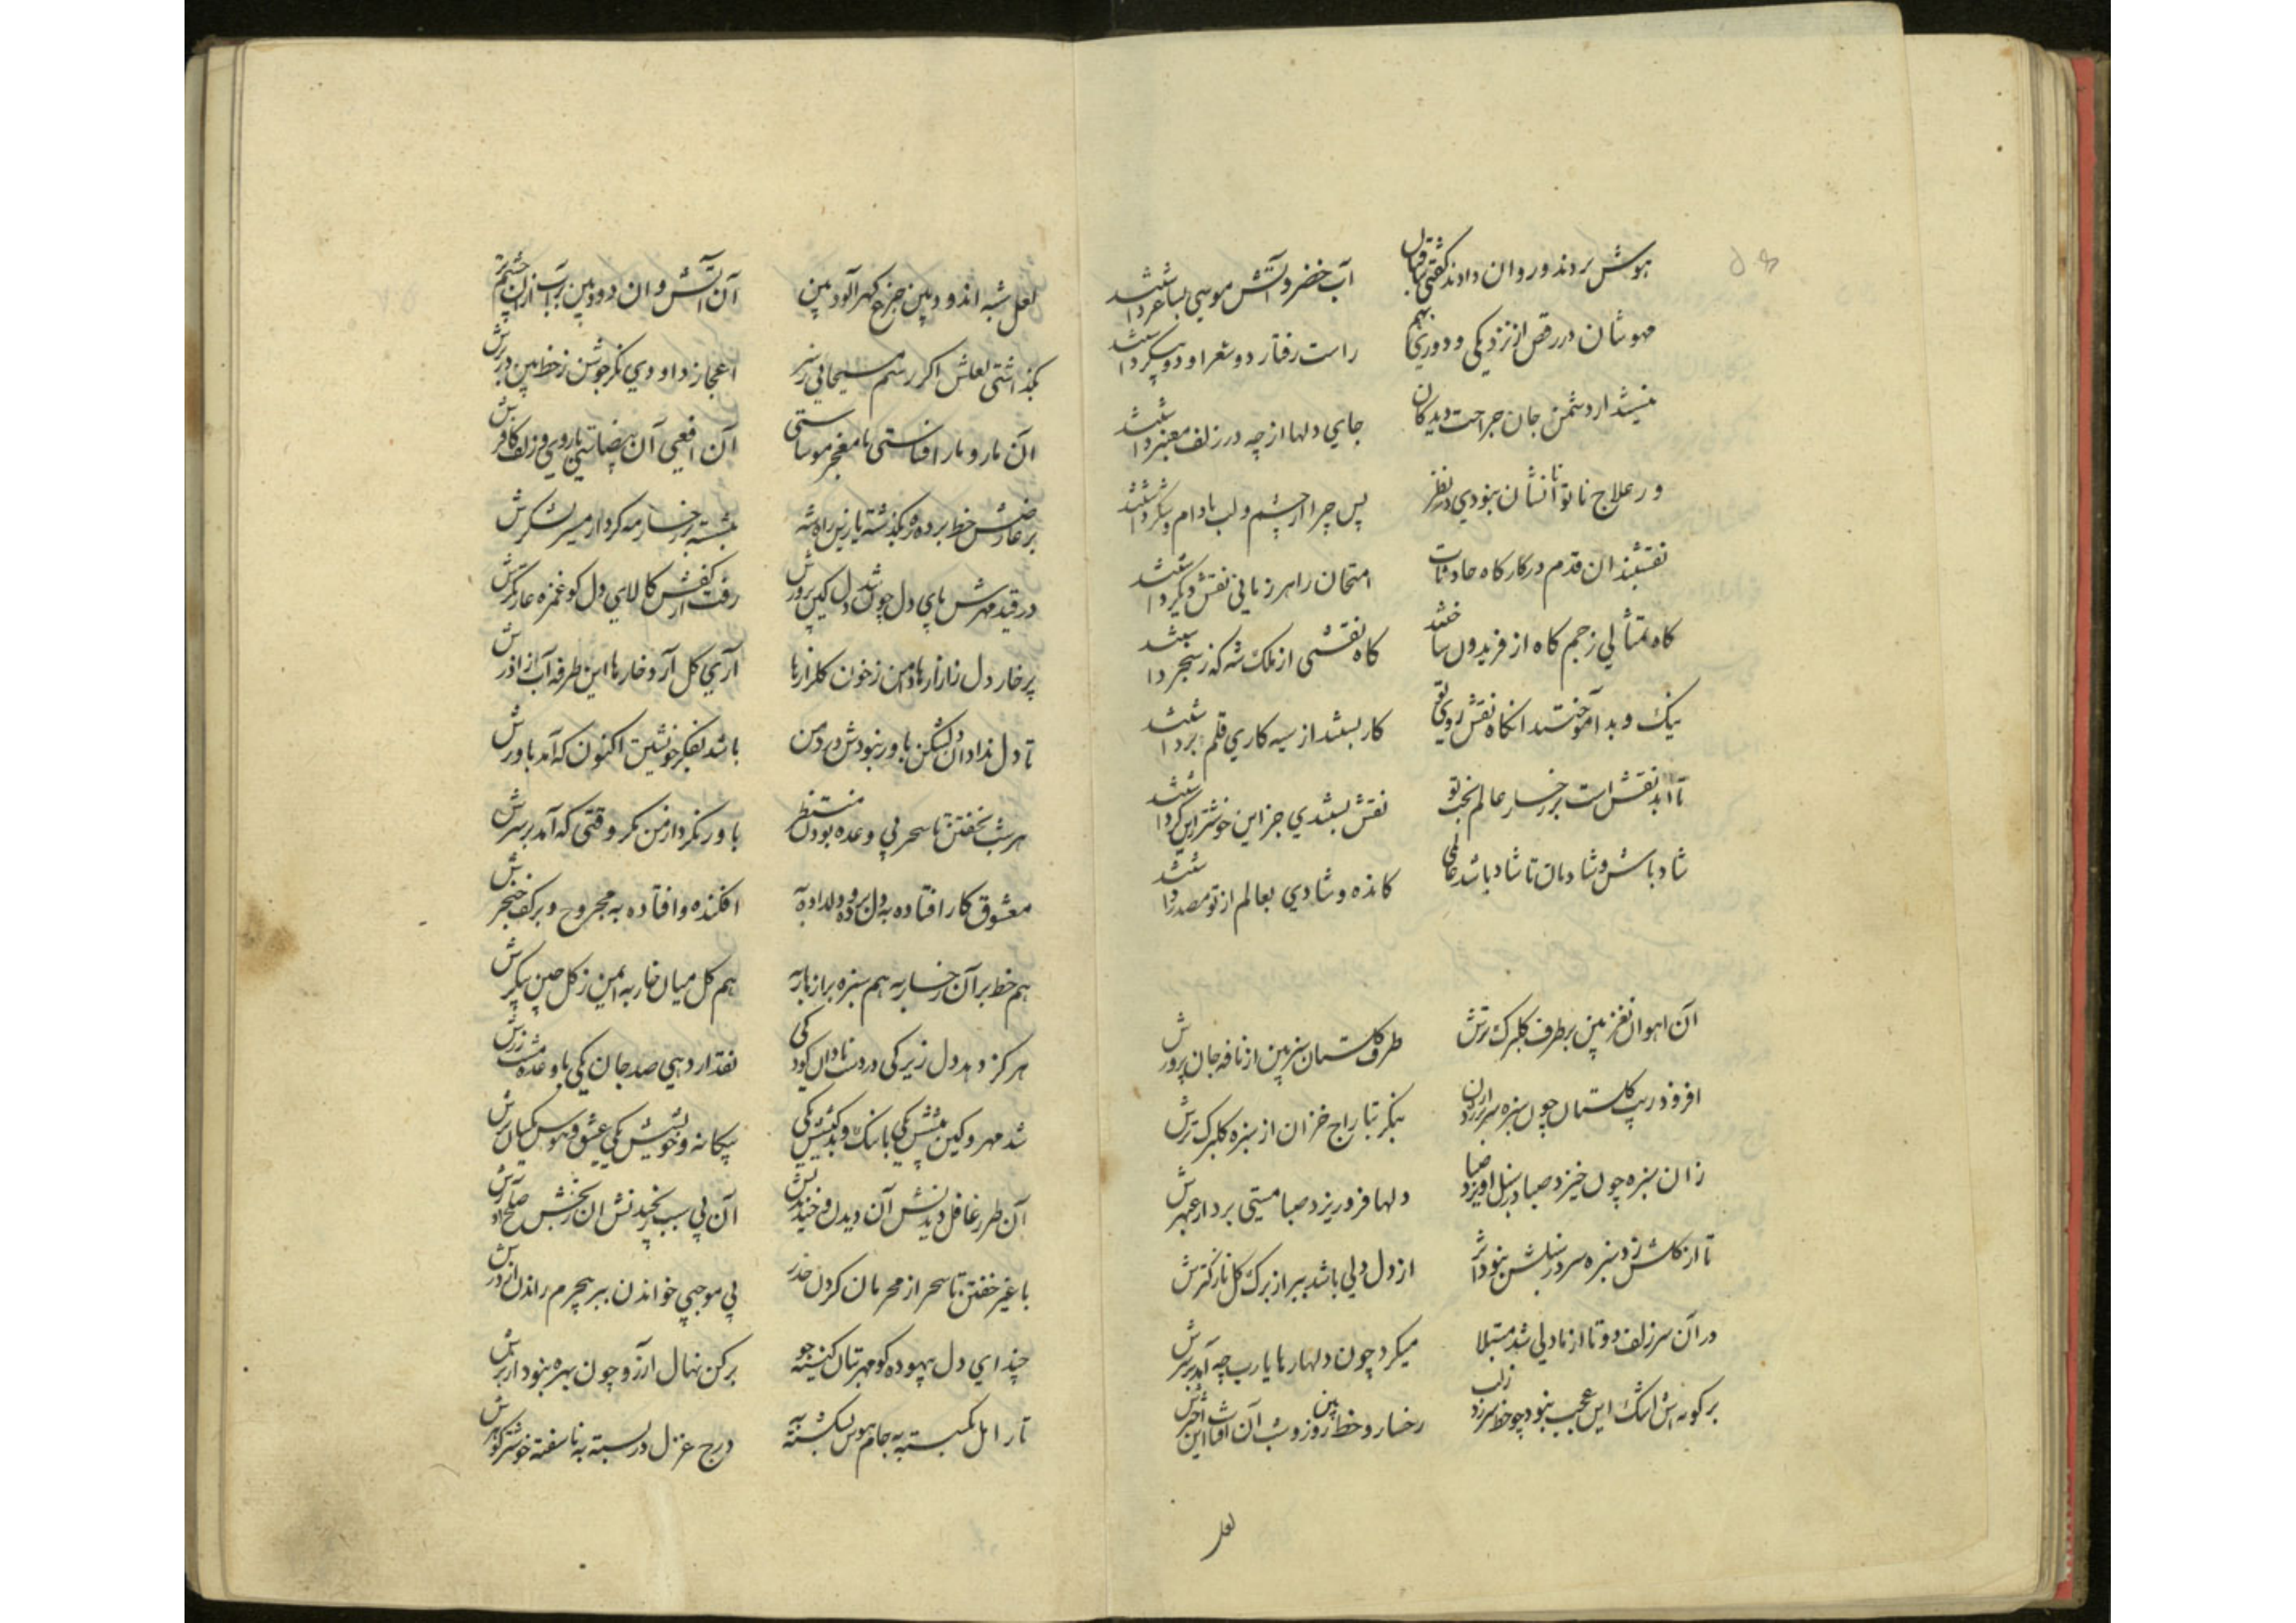 هوش بردند و روان دادند گفتی ساقیان آب خضر و آتش موسی بساغر داشتند
مهوشان در رقص از نزدیکی و دوری بهم راست رفتار دو شعرا و دو پیکر داشتند
دشمن جان جراحت دیدگان جای دلها از چه در زلف معنبر داشتند
ور علاج ناتوانانشان نبودی در نظر پس چرا از چشم و لب بادام و شکر داشتند
نقشبندان قدم در کارگاه حادثات امتحان را هر زمانی نقش دیگر داشتند
گاه تمثالی ز جم گاه از فریدون ساختند گاه نقشی از ملک شه گه ز سنجر داشتند
نیک و بد آموختند آنگاه نقش روی تو کار بستند از سیه کاری قلم برداشتند
تا ابد نقش است بر رخسار عالم بخت تو نقش بستندی جز این خوشتر از این گر داشتند
شاد باش و شادمان تا شاد باشد عالمی کانده و شادی بعالم از تو مصدر داشتند
آن آهوان نغز بین بر طرف گلبرگ ترش طرف گلستان سنبرین از نافه جان پرورش
افزود زیب گلستان چون سبزه سر برزد از آن بنگر بتاراج خزان از سبزه گلبرگ ترش
زان سبزه چون خیزد صبا در سنبل آویزد صبا دلها فرو ریزد صبا مستی برد از عبهرش
تا از گلش زد سبزه سر در سنبلش نبود اثر از دل دلی باشد ببر از برگ گل نازکترش
در آن سر زلف دوتا از نا دلی شد مبتلا میکرد چون دلها رها یارب چه آمد بر سرش
بر گونه اش اشک این عجب نبود چو خط سرزد ز لب رخسار و خط بین روز و شب آن آفتاب این اخترش
لعل
لعل شبه اندود بین جزع گهرآلود بین آن آتش و آن دود بین بر آب از آن چشم ترش
بگذاشتی لعلش اگر رسم مسیحائی ز سر اعجاز داودی نگر جوشن ز خط بین در برش
آن مار و مار افساستی با معجز موساستی آن افعی آن بیضاستی با روی و زلف کافرش
بر عارضش خط برده ره بگذشته بازین راه شه بنشسته بر رخسار مه گرد از مسیر لشکرش
در قید مهرش پای دل چون شد دل کین پرورش رفت از کفش کالای دل کو غمزه غارتگرش
پر خار دل ز آزارها دامن ز خون گلزارها آری گل آرد خارها این طرفه آب از آذرش
تا دل نداد آن دلشکن باور نبودش درد من باشد بفکر خویشتن اکنون که آمد باورش
هر شب نخفتن تا سحر بی وعده بودن منتظر باور نکرد از من مگر وقتی که آمد بر سرش
معشوق کار افتاده به دل برده و دلداده به افکنده و افتاده به مجروح و بر کف خنجرش
هم خط بر آن رخسار به هم سبزه بر ازهار به هم گل میان خار به این ز گل چین پیکرش
هرگز دهد دل زیرکی در دست نادان کودکی نقد ار دهی صد جان یکی با وعده مشت زرش
شد مهر و کین پیشش یکی با نیک و بد کیشش یکی بیگانه و خویشش یکی عشق و هوس یکسان برش
آن طرز غافل دیدنش آن دیدن و خندیدنش آن بی سبب رنجیدنش آن رنجش صلح آورش
با غیر خفتن تا سحر از محرمان کردن حذر بی موجبی خواندن ببر بیجرم راندن از درش
چند ای دل بیهوده گو مهر بتان کینه جو برکن نهال آرزو چون بهره نبود از برش
تار امل بگسسته به جام هوس بشکسته به درج غزل در بسته به ناسفته خوشتر گوهرش